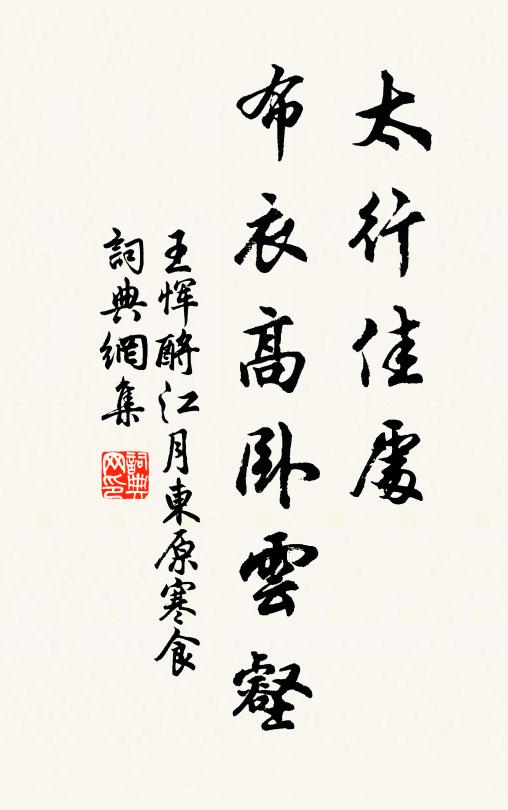 太行佳處
布衣高卧雲壑
王惲酹江月東原寒食
詞典網集
詞典网印